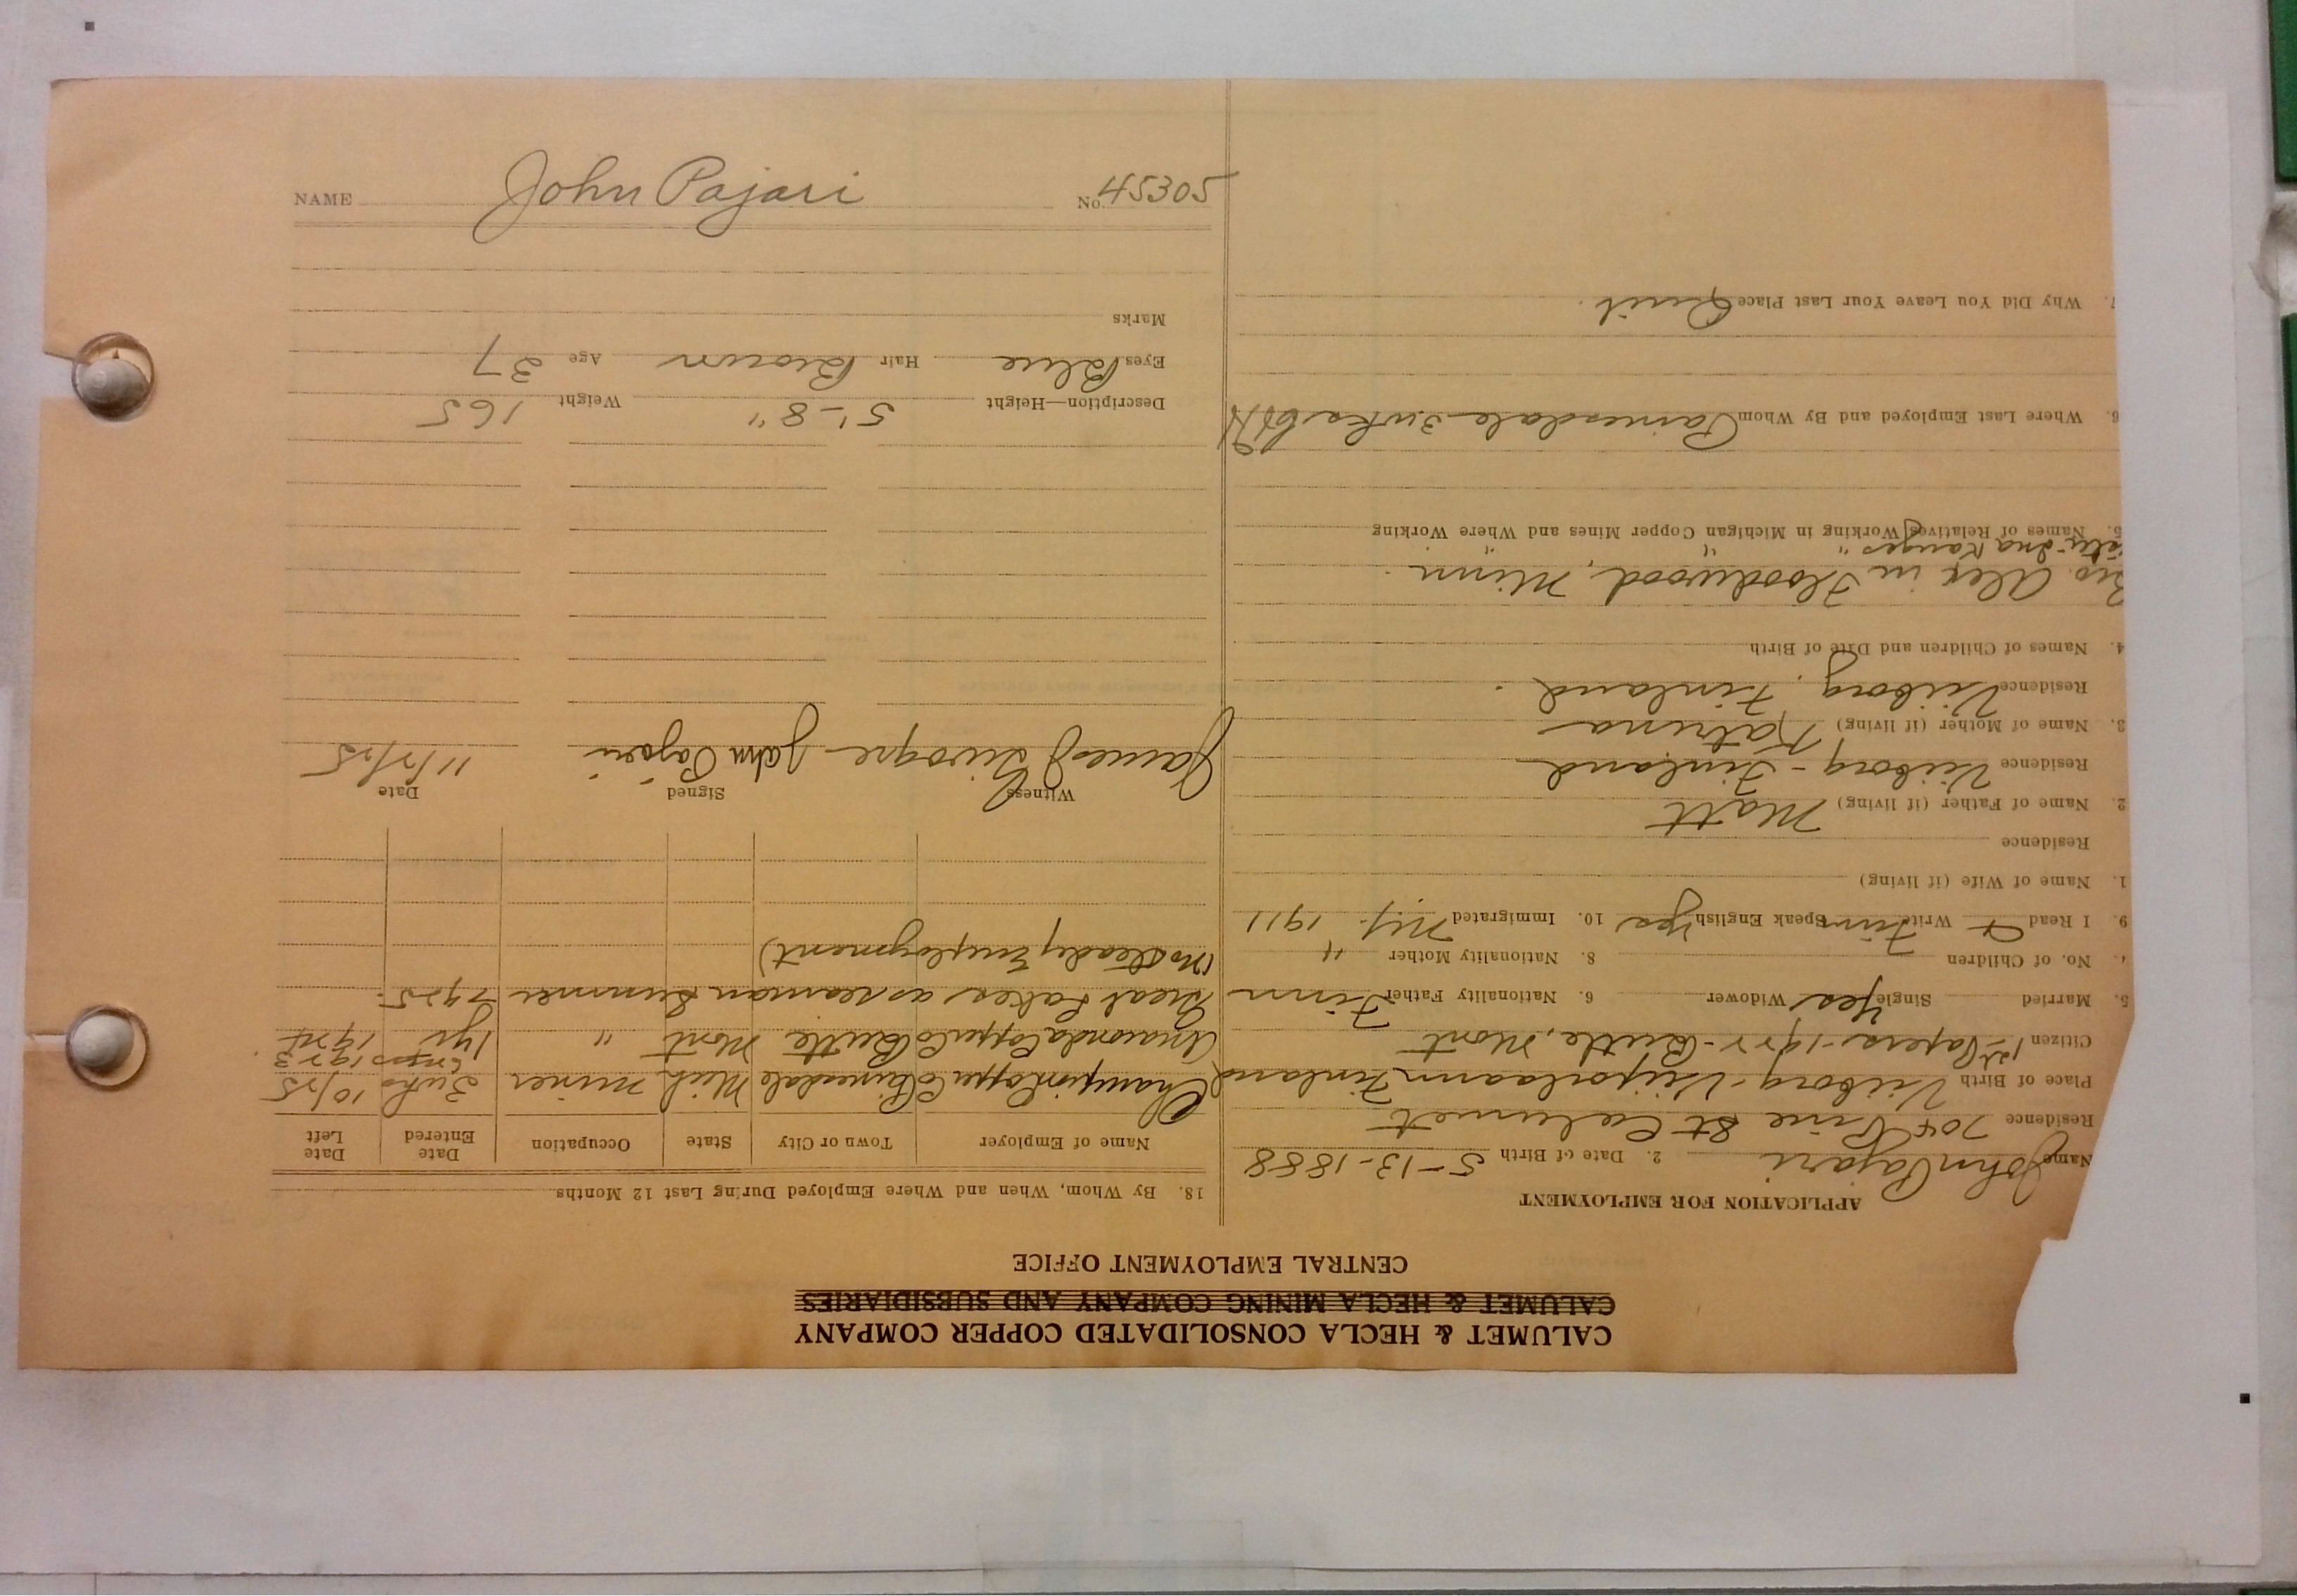 CALUMET & HECLA CONSOLIDATED COPPER COMPANY
CALUMET & HECLA MINING COMPANY AND SUBSIDIARIES
CENTRAL EMPLOYMENT OFFICE
APPLICATION FOR EMPLOYMENT
Name John Pajari 2. Date of Birth 5-13-1888
Residence 704 Pine St Calumet
Place of Birth Viiborg - Finland
Citizen 1st Papers - 1922 - Butte, Mont
5. Married Single Yes Widower 6. Nationality Father Finn
No. of Children 8. Nationality Mother "
9. I Read Write Finn Speak English Yes 10. Immigrated 1911
1. Name of Wife (if living)
Residence
2. Name of Father (if living) Matt
Residence Viiborg - Finland
3. Name of Mother (if living) Katrina
Residence Viiborg, Finland.
4. Names of Children and Date of Birth
Alex in Floodwood, Minn.
" " "
5. Names of Relatives Working in Michigan Copper Mines and Where Working
6. Where Last Employed and By Whom Painesdale
7. Why Did You Leave Your Last Place Quit
18. By Whom, When and Where Employed During Last 12 Months
Name of Employer Town or City State Occupation Date Entered Date Left
Champion Copper Co Painesdale Mich Miner 3 wks 10/25
1923
Anaconda Copper Co Butte Mont " 1 yr 1924
Great Lakes as seaman Summer 1925.
(No Steady Employment)
Witness Signed Date
James John Pajari 11/2/25
Description—Height 5'-8" Weight 165
Eyes Blue Hair Brown Age 37
Marks
NAME John Pajari No. 45305